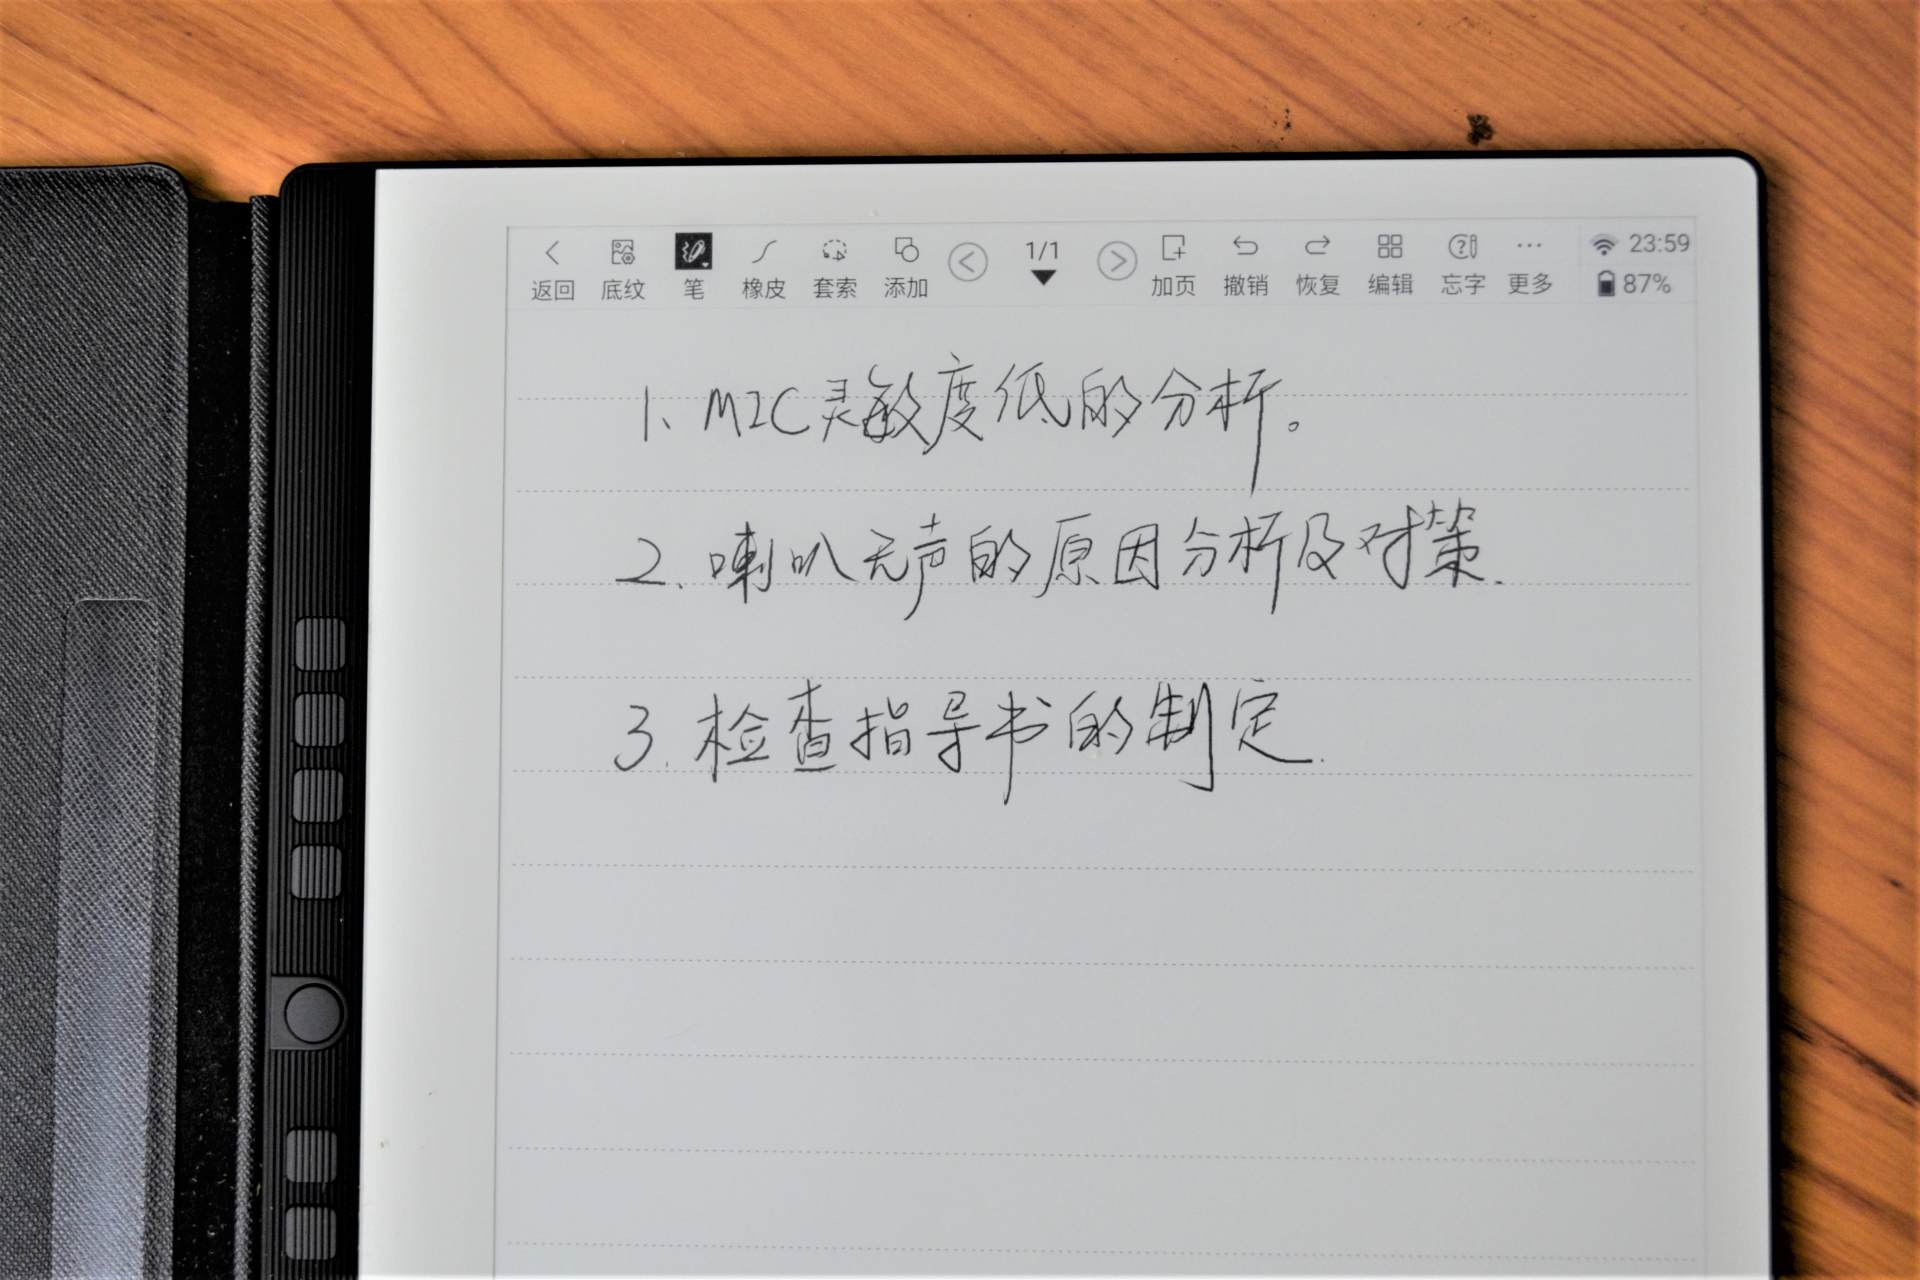 1/1 23:59
返回 底纹 笔 橡皮 套索 添加 加页 撤销 恢复 编辑 忘字 更多 87%
1、MIC灵敏度低的分析。
2.喇叭无声的原因分析及对策.
3.检查指导书的制定.